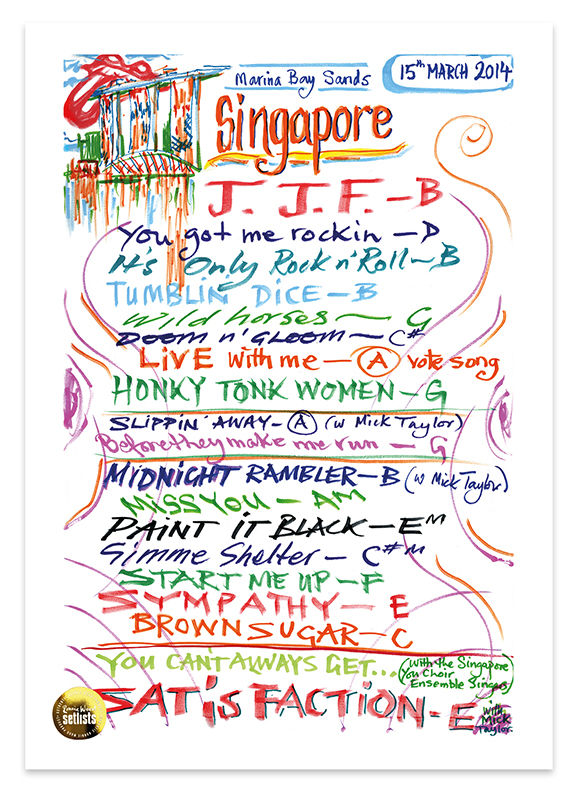 Marina Bay Sands
15th MARCH 2014
Singapore
J. J. F. – B
You got me rockin – D
It's Only Rock n' Roll – B
TUMBLIN DICE – B
Wild horses – G
DOOM n' GLOOM – C#
LiVE with me – A vote song
HONKY TONK WOMEN – G
SLIPPIN' AWAY – A (w Mick Taylor)
Before they make me run – G
MIDNIGHT RAMBLER – B (w Mick Taylor)
MISS YOU – Am
PAINT iT BLACK – Em
Gimme Shelter – C#m
START ME UP – F
SYMPATHY – E
BROWN SUGAR – C
YOU CAN'T ALWAYS GET... (with the Singapore
You Choir
Ensemble Singers)
SATisFACTION - E with
Mick
Taylor.
Ronnie Wood
setlists